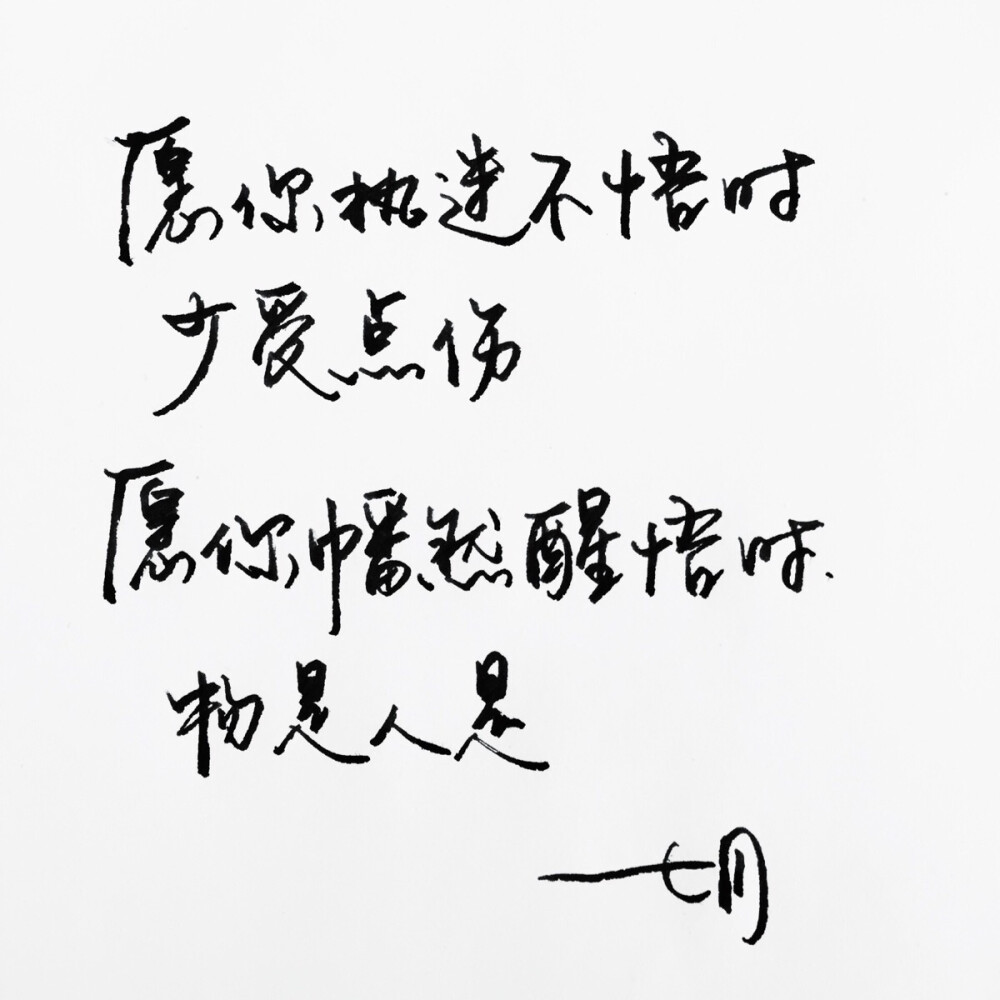 愿你执迷不悟时
少受点伤
愿你幡然醒悟时.
物是人是
七月